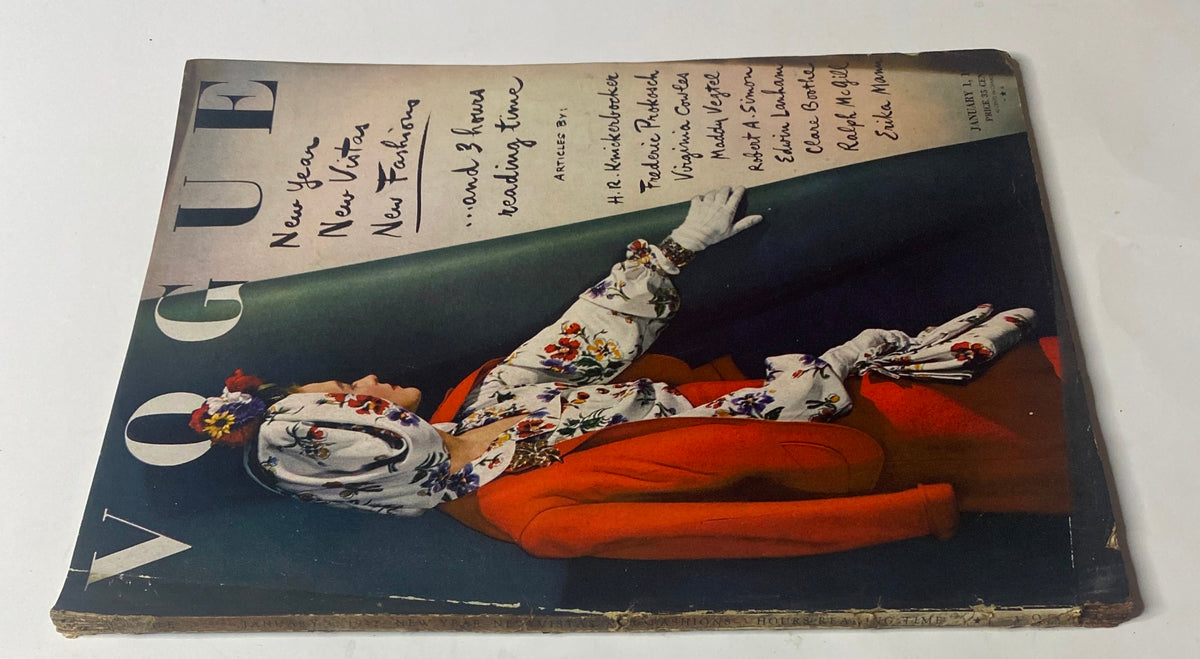 VOGUE
New Year
New Vistas
New Fashions
...and 3 hours
reading time
ARTICLES BY:
H.R. Knickerbocker
Frederic Prokosch
Virginia Cowles
Maddy Vegtel
Robert A. Simon
Edwin Lanham
Clare Boothe
Ralph McGill
Erika Mann
JANUARY 1,
PRICE 35 CEN
JANUARY NEW YEAR NEW VISTAS NEW FASHIONS 3 HOURS READING TIME